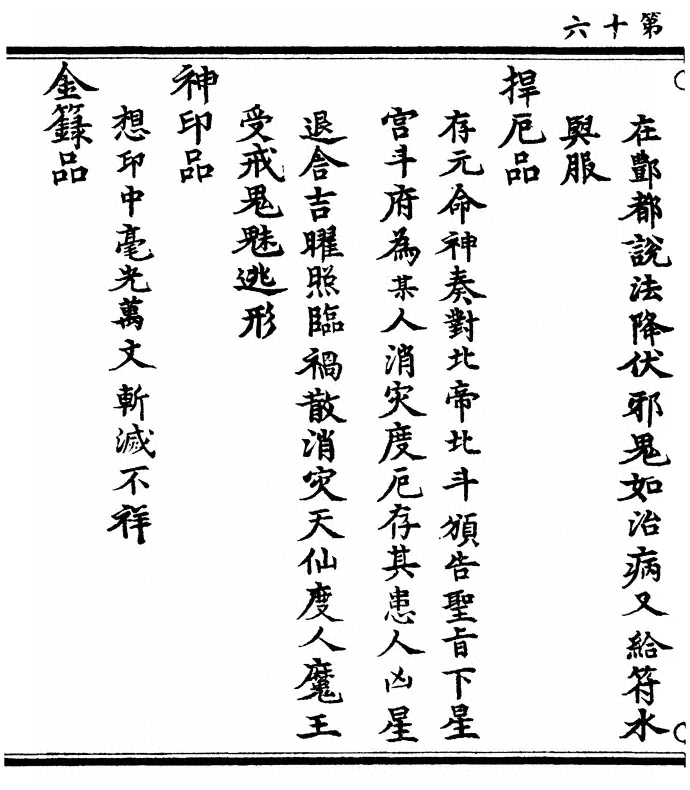 第十六
在酆都說法降伏邪鬼如治病又給符水
與服
捍厄品
存元命神奏對北帝北斗頒告聖旨下星
宮斗府為某人消灾度厄存其患人凶星
退舍吉曜照臨禍散消灾天仙度人魔王
受戒鬼魅逃形
神印品
想印中毫光萬丈斬滅不祥
金籙品